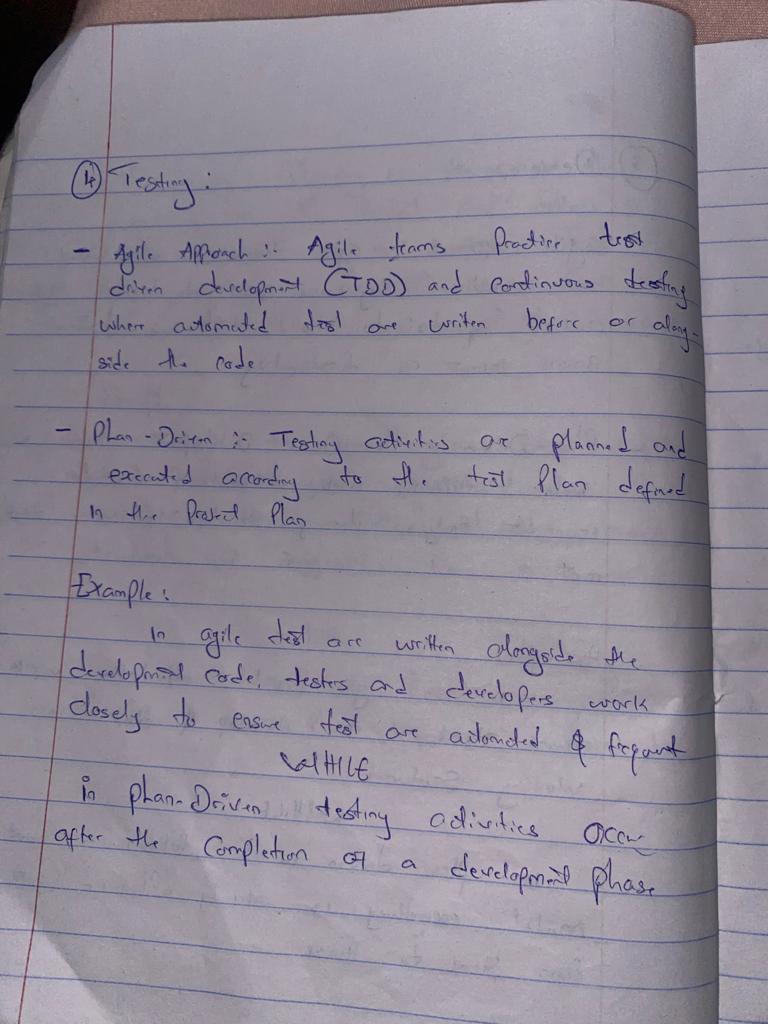 ④ Testing :
- Agile Approach :- Agile teams Practice test
driven development (TDD) and continuous testing
where automated test are writen before or along-
side the code
- Plan-Driven :- Testing activities are planned and
executed according to the test Plan defined
in the Project Plan
Example :
In agile test are written alongside the
development code, testers and developers work
closely to ensure test are automated & frequent
WHILE
in phan-Driven testing activities occur
after the Completion of a development phase